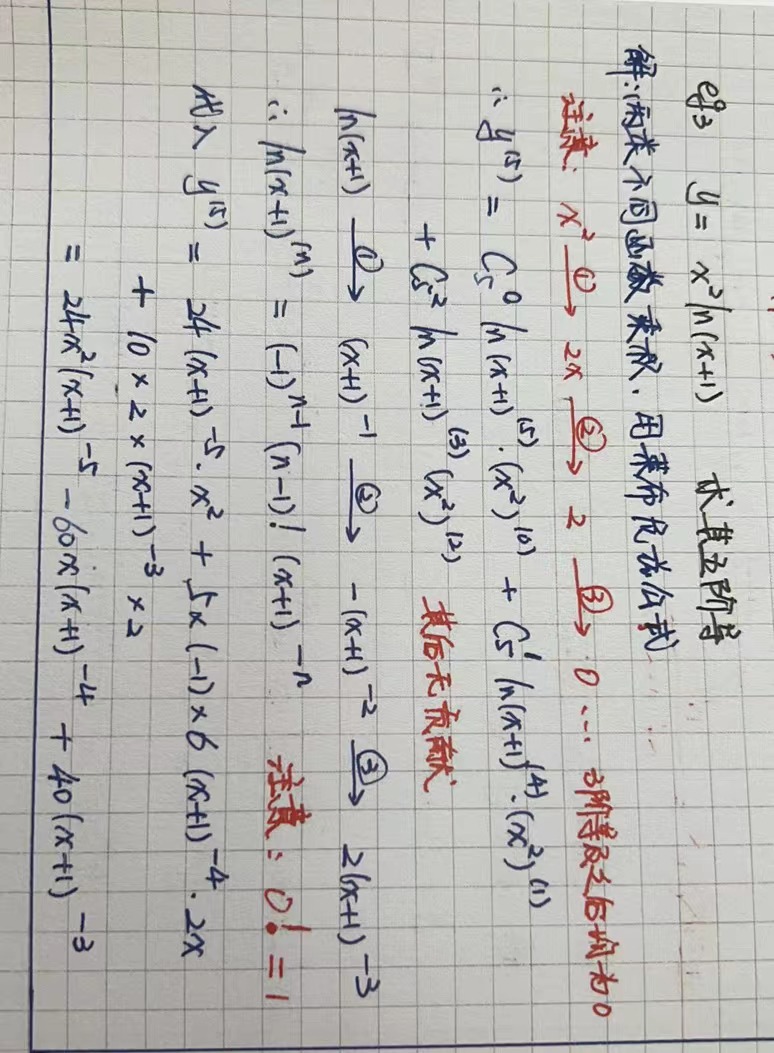 eg3 y = x²ln(x+1) 求其五阶导
解:两类不同函数乘积.用莱布尼兹公式
注意: x² ①→ 2x ②→ 2 ③→ 0 … 3阶导及之后均为0
∴ y⁽⁵⁾ = C₅⁰ ln(x+1)⁽⁵⁾·(x²)⁽⁰⁾ + C₅¹ ln(x+1)⁽⁴⁾·(x²)⁽¹⁾
+ C₅² ln(x+1)⁽³⁾(x²)⁽²⁾ 其后无贡献
ln(x+1) ①→ (x+1)⁻¹ ②→ -(x+1)⁻² ③→ 2(x+1)⁻³
∴ ln(x+1)⁽ⁿ⁾ = (-1)ⁿ⁻¹(n-1)! (x+1)⁻ⁿ 注意: 0! = 1
代入 y⁽⁵⁾ = 24(x+1)⁻⁵·x² + 5×(-1)×6(x+1)⁻⁴·2x
+ 10×2×(x+1)⁻³×2
= 24x²(x+1)⁻⁵ - 60x(x+1)⁻⁴ + 40(x+1)⁻³